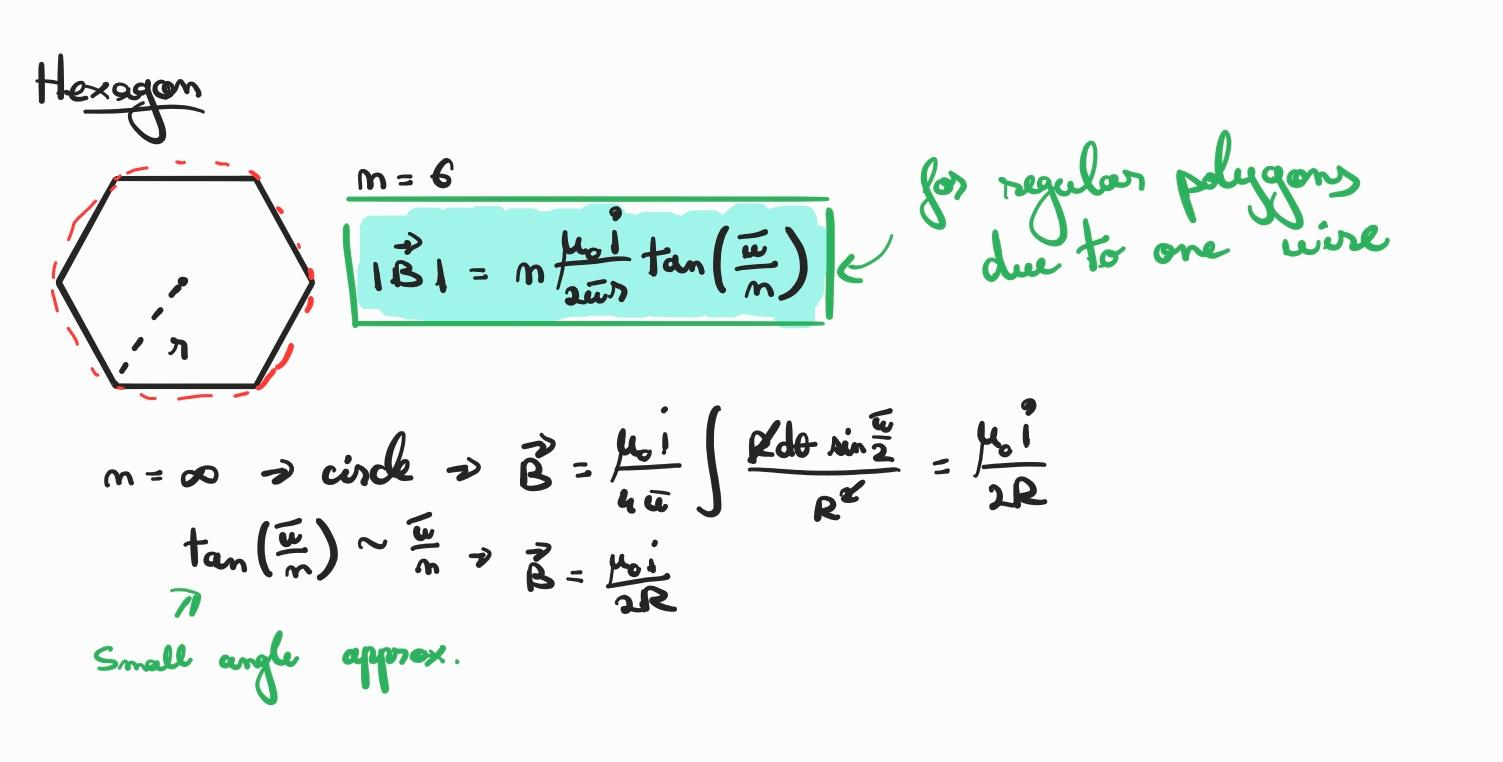 Hexagon
n = 6
|B⃗| = n μ₀i/2πr tan(π/n)
for regular polygons
due to one wire
r
n = ∞ → circle → B⃗ = μ₀i/4π ∫ Rdθ sin π/2 / R² = μ₀i/2R
tan(π/n) ~ π/n → B⃗ = μ₀i/2R
Small angle approx.